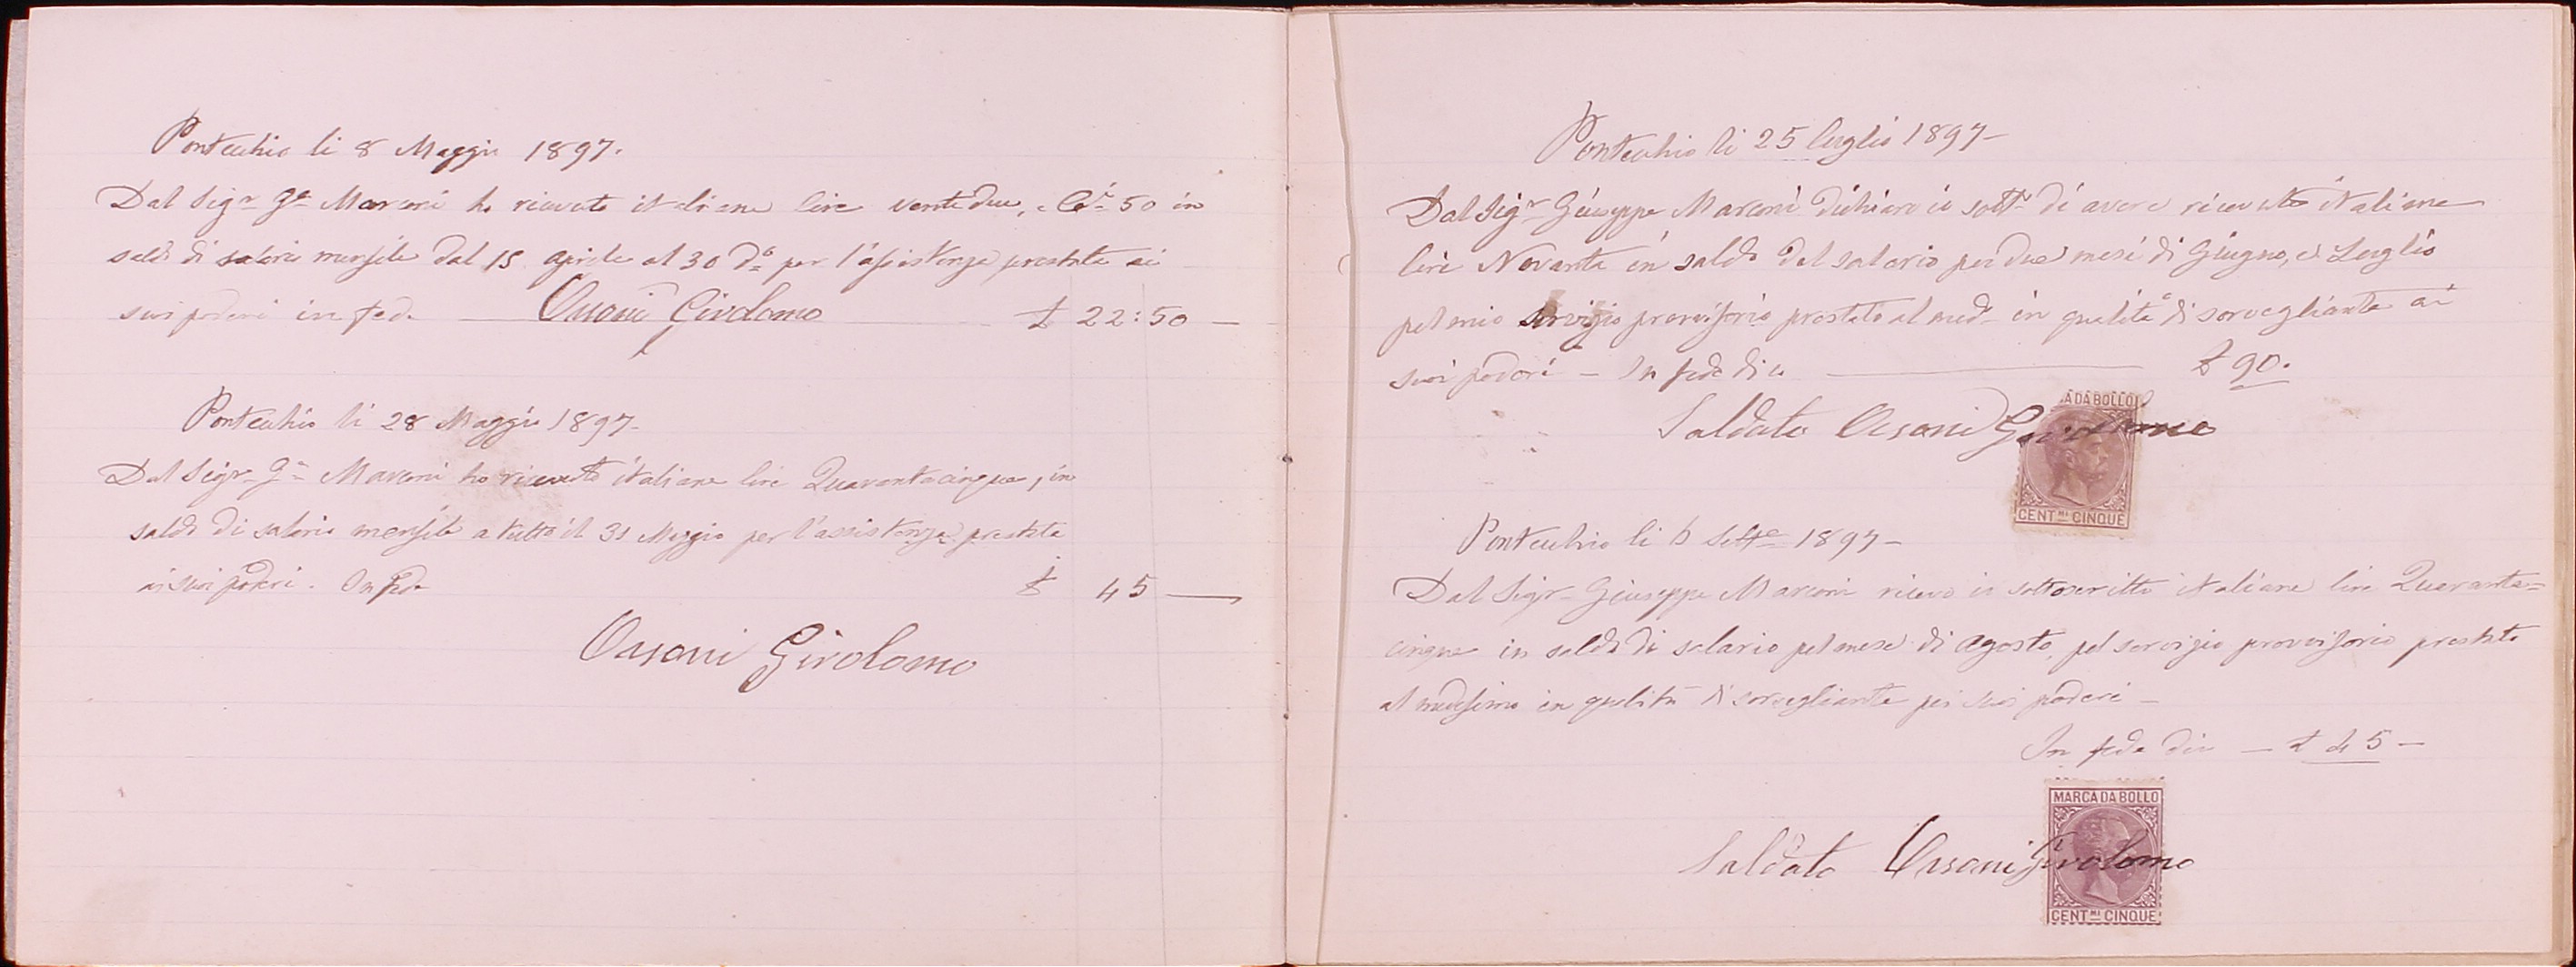 Pontecchio li 8 Maggio 1897.
Dal Sigr. Ge. Marconi ho ricevuto italiane lire ventidue, e Ci. 50 in
saldo di salario mensile dal 15 aprile al 30 do. per l'assistenza prestata ai
suoi poderi in fede. Orsoni Girolamo £ 22:50 —
Pontecchio li 28 Maggio 1897.
Dal Sigr. Ge. Marconi ho ricevuto italiane lire Quarantacinque, in
saldo di salario mensile a tutto il 31 Maggio per l'assistenza prestata
ai suoi poderi. In fede £ 45 —
Orsoni Girolamo
Pontecchio li 25 luglio 1897 —
Dal Sigr. Giuseppe Marconi dichiaro io sotto. di avere ricevuto italiane
lire Novanta in saldo del salario pei due mesi di Giugno, e Luglio
pel mio servizio provvisorio prestato al med. in qualità di sorvegliante ai
suoi poderi — In fede di c. £ 90.
Saldato Orsoni Girolamo
A DA BOLLO
CENT.MI CINQUE
Pontecchio li 6 Sette. 1897 —
Dal Sigr. Giuseppe Marconi ricevo io sottoscritto italiane lire Quaranta=
cinque in saldo di salario pel mese di Agosto, pel servizio provvisorio prestato
al medesimo in qualità di sorvegliante pei suoi poderi —
In fede di c. — £ 45 —
MARCA DA BOLLO
Saldato Orsoni Girolamo
CENT.MI CINQUE